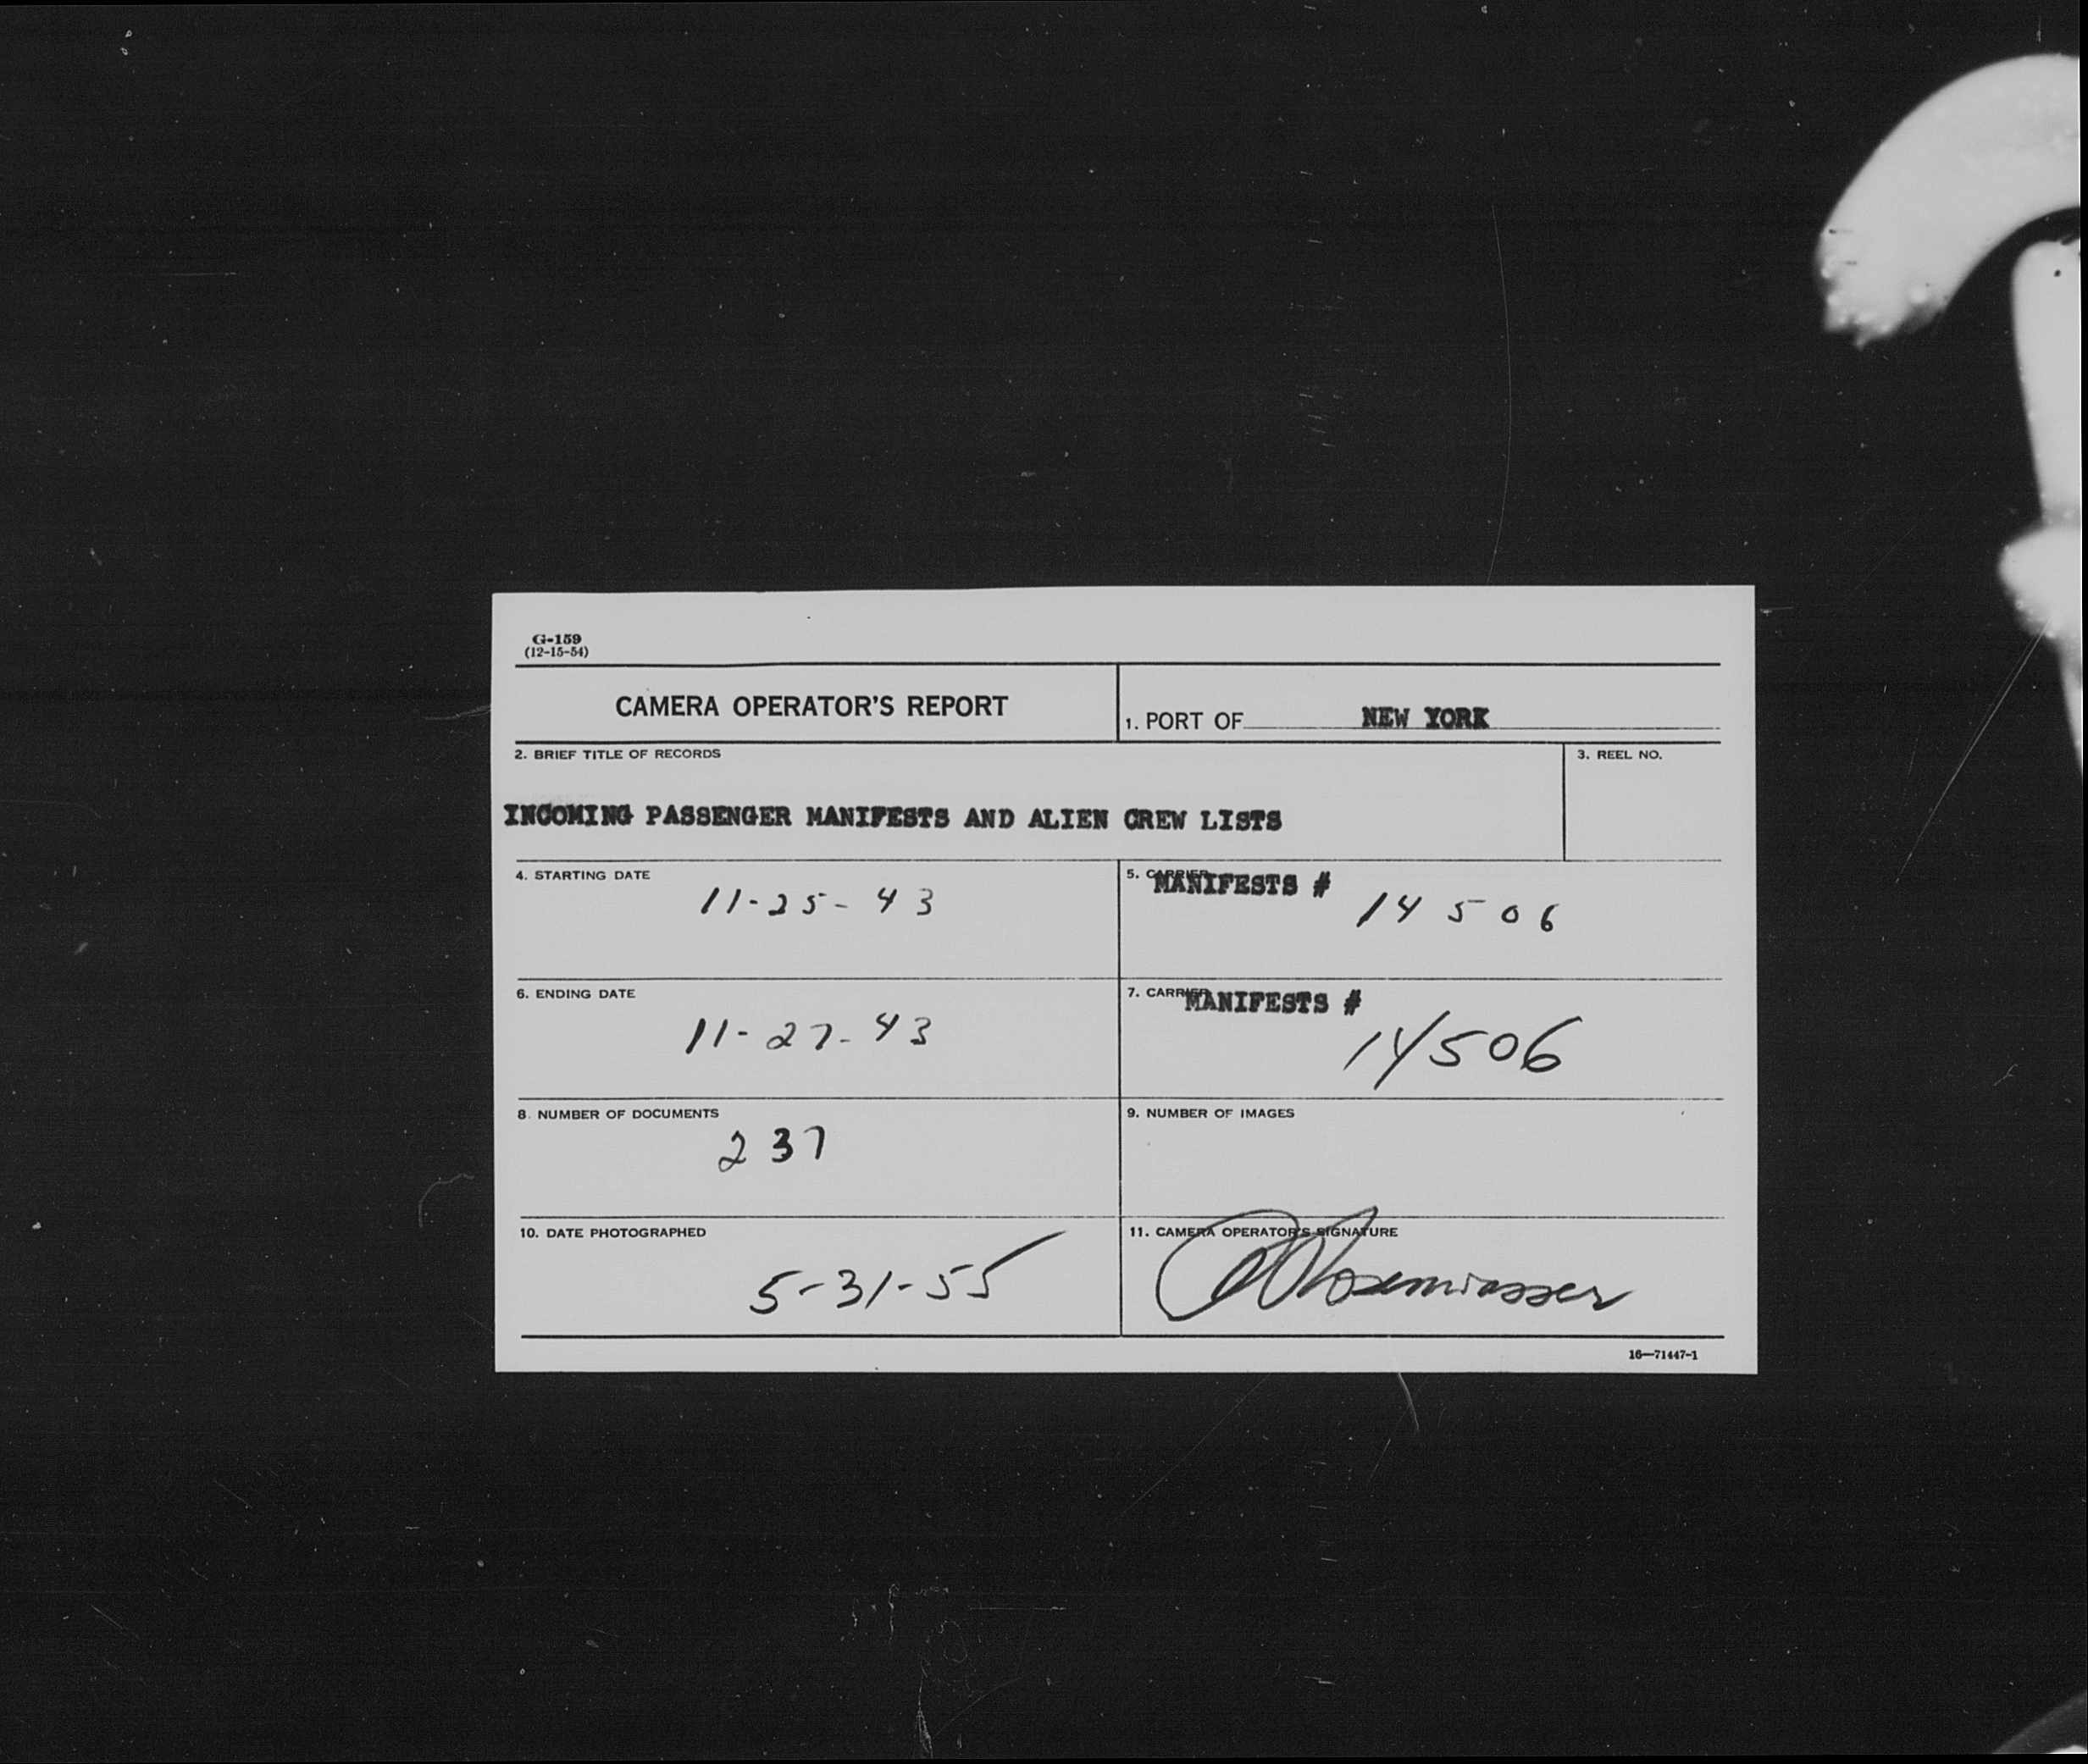 G-159
(12-15-54)
CAMERA OPERATOR'S REPORT
1. PORT OF NEW YORK
2. BRIEF TITLE OF RECORDS
3. REEL NO.
INCOMING PASSENGER MANIFESTS AND ALIEN CREW LISTS
4. STARTING DATE
11-25-43
5. CARRIER
MANIFESTS #
14506
6. ENDING DATE
11-27-43
7. CARRIER
MANIFESTS #
14506
8. NUMBER OF DOCUMENTS
237
9. NUMBER OF IMAGES
10. DATE PHOTOGRAPHED
5-31-55
11. CAMERA OPERATOR'S SIGNATURE
Rosenwasser
16—71447-1